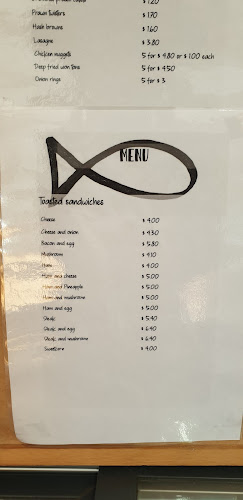 $ 1.20
Prawn twisters $ 1.70
Hash browns $ 1.60
Lasagne $ 3.80
Chicken nuggets 5 for $ 4.80 or $ 1.00 each
Deep fried won tons 5 for $ 4.50
Onion rings 5 for $ 3
MENU
Toasted sandwiches
Cheese $ 4.00
Cheese and onion $ 4.30
Bacon and egg $ 5.80
Mushroom $ 4.10
Ham $ 4.00
Ham and cheese $ 5.00
Ham and Pineapple $ 5.00
Ham and mushroom $ 5.00
Ham and egg $ 5.00
Steak $ 5.40
Steak and egg $ 6.40
Steak and mushroom $ 6.40
Sweetcorn $ 4.00